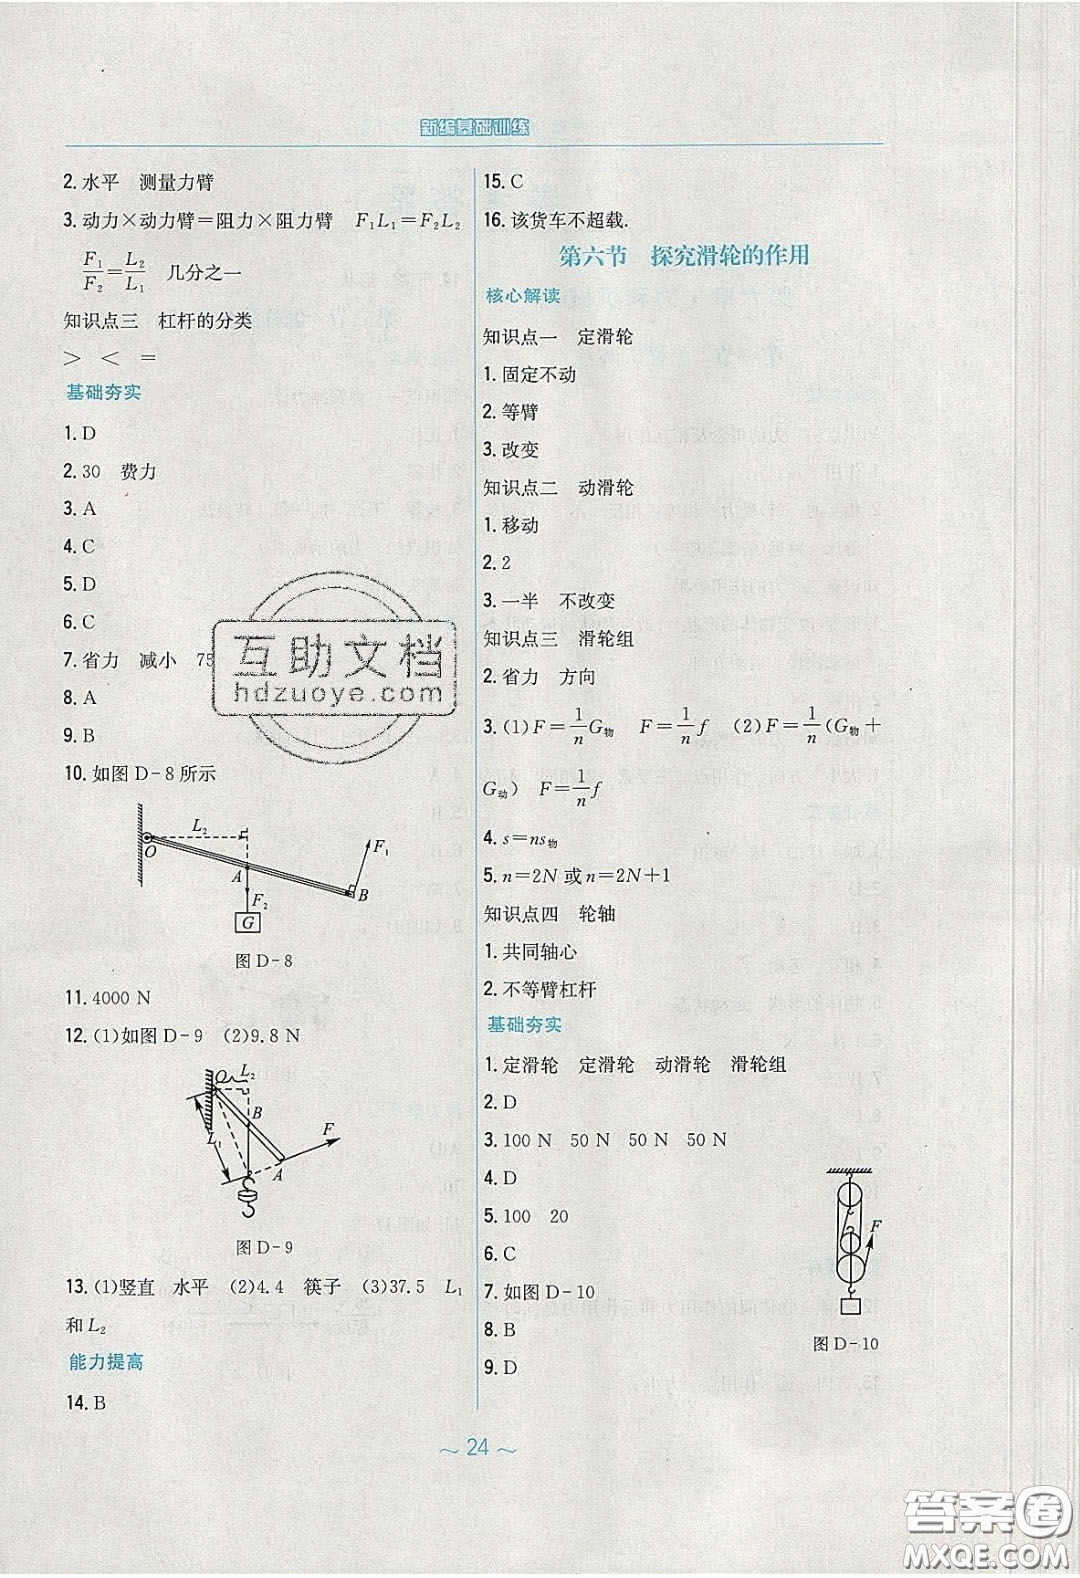 新编基础训练
2. 水平 测量力臂
3. 动力×动力臂=阻力×阻力臂 F₁L₁=F₂L₂
F₁/F₂=L₂/L₁ 几分之一
知识点三 杠杆的分类
> < =
基础夯实
1. D
2. 30 费力
3. A
4. C
5. D
6. C
7. 省力 减小 75
8. A
9. B
10. 如图 D-8 所示
L₂
O
F₁
A
B
F₂
G
图 D-8
11. 4000 N
12. (1)如图 D-9 (2)9.8 N
O
L₂
B
F
L₁
A
图 D-9
13. (1)竖直 水平 (2)4.4 筷子 (3)37.5 L₁
和 L₂
能力提高
14. B
15. C
16. 该货车不超载.
第六节 探究滑轮的作用
核心解读
知识点一 定滑轮
1. 固定不动
2. 等臂
3. 改变
知识点二 动滑轮
1. 移动
2. 2
3. 一半 不改变
知识点三 滑轮组
2. 省力 方向
3. (1)F=1/n G物 F=1/n f (2)F=1/n(G物+
G动) F=1/n f
4. s=ns物
5. n=2N 或 n=2N+1
知识点四 轮轴
1. 共同轴心
2. 不等臂杠杆
基础夯实
1. 定滑轮 定滑轮 动滑轮 滑轮组
2. D
3. 100 N 50 N 50 N 50 N
4. D
5. 100 20
6. C
7. 如图 D-10
8. B
9. D
F
图 D-10
~ 24 ~
互助文档
hdzuoye.com
答案圈
MXQE.COM